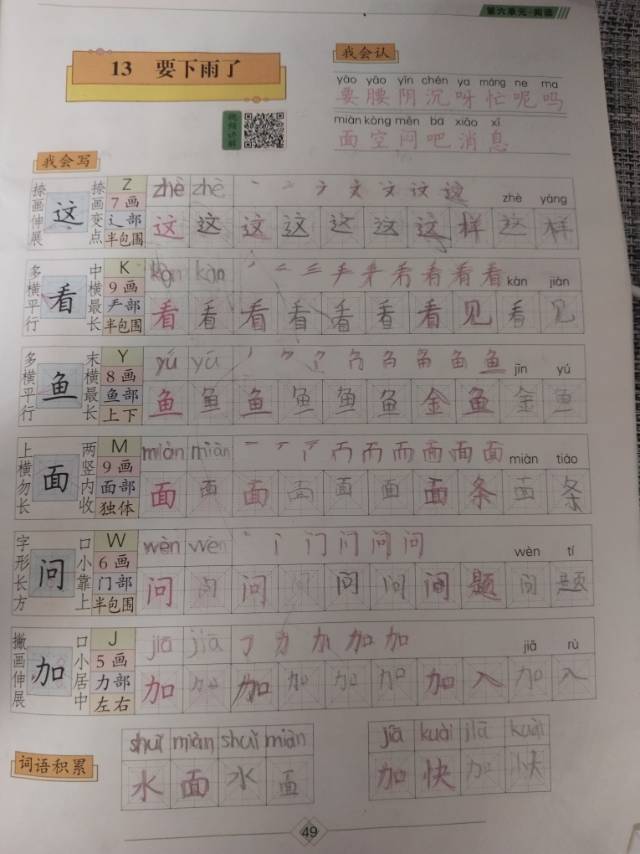 第六单元·阅读
13 要下雨了
视频讲解
我会认
yāo yāo yīn chén ya máng ne ma
要腰阴沉呀忙呢吗
miàn kòng mēn ba xiāo xī
面空闷吧消息
我会写
捺画伸展 这 捺画变点 Z 7画 辶部 半包围 zhè zhè zhè yàng
这这这这这这这样这样
多横平行 看 中横最长 K 9画 龵部 半包围 kàn kàn kàn jiàn
看看看看看看看见看见
多横平行 鱼 末横最长 Y 8画 鱼部 上下 yú yú jīn yú
鱼鱼鱼鱼鱼鱼金鱼金鱼
上横勿长 面 两竖内收 M 9画 面部 独体 miàn miàn miàn tiáo
面面面面面面面条面条
字形长方 问 口小靠上 W 6画 门部 半包围 wèn wèn wèn tí
问问问问问问问题问题
撇画伸展 加 口小居中 J 5画 力部 左右 jiā jiā jiā rù
加加加加加加加入加入
词语积累
shuǐ miàn shuǐ miàn
水面水面
jiā kuài jiā kuài
加快加快
49